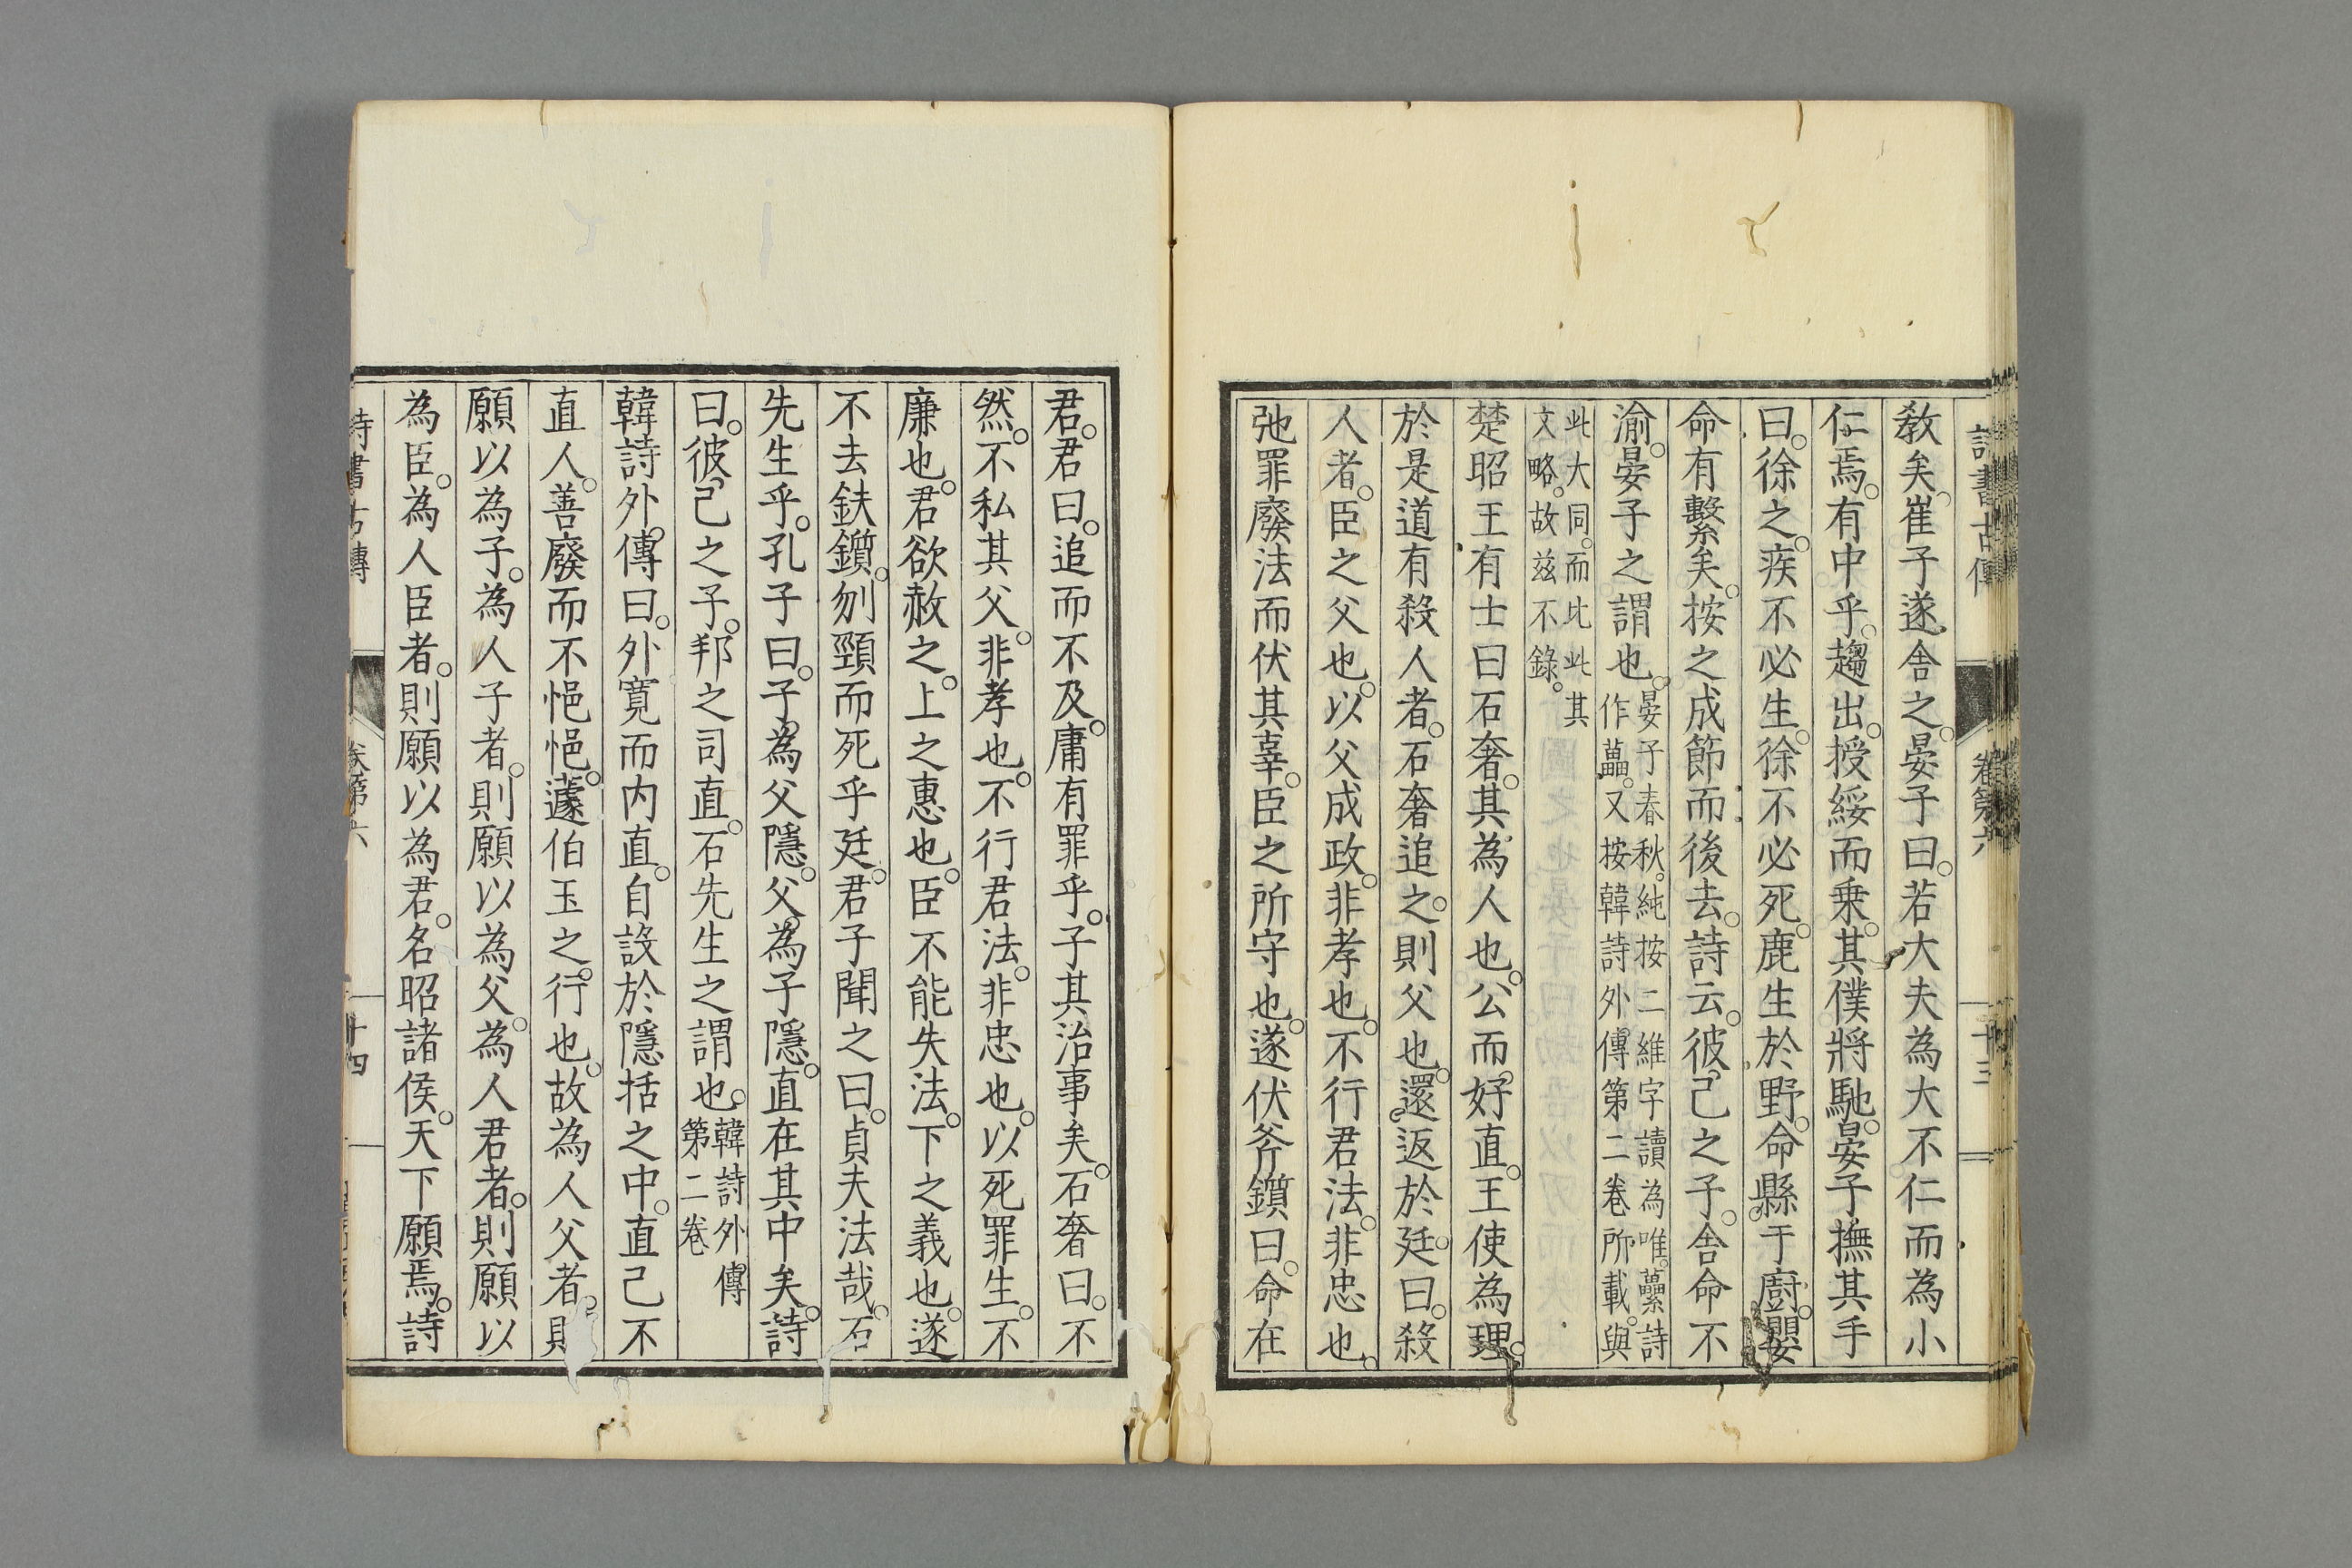 詩書古傳
卷第六
十三
教矣崔子遂舍之晏子曰若大夫為大不仁而為小
仁焉有中乎趨出授綏而乗其僕將馳晏子撫其手
曰徐之疾不必生徐不必死鹿生於野命縣于廚嬰
命有繫矣按之成節而後去詩云彼己之子舍命不
渝晏子之謂也
晏子春秋純按二維字讀為唯虆詩
作藟又按韓詩外傳第二卷所載與
此大同而此此其
文略故兹不錄
楚昭王有士曰石奢其為人也公而好直王使為理
於是道有殺人者石奢追之則父也還返於廷曰殺
人者臣之父也以父成政非孝也不行君法非忠也
弛罪廢法而伏其辜臣之所守也遂伏斧鑕曰命在
君君曰追而不及庸有罪乎子其治事矣石奢曰不
然不私其父非孝也不行君法非忠也以死罪生不
廉也君欲赦之上之惠也臣不能失法下之義也遂
不去鈇鑕刎頸而死乎廷君子聞之曰貞夫法哉石
先生乎孔子曰子為父隱父為子隱直在其中矣詩
曰彼己之子邦之司直石先生之謂也
韓詩外傳
第二卷
韓詩外傳曰外寛而内直自設於隱括之中直己不
直人善廢而不悒悒蘧伯玉之行也故為人父者則
願以為子為人子者則願以為父為人君者則願以
為臣為人臣者則願以為君名昭諸侯天下願焉詩
詩書古傳
卷第六
十四